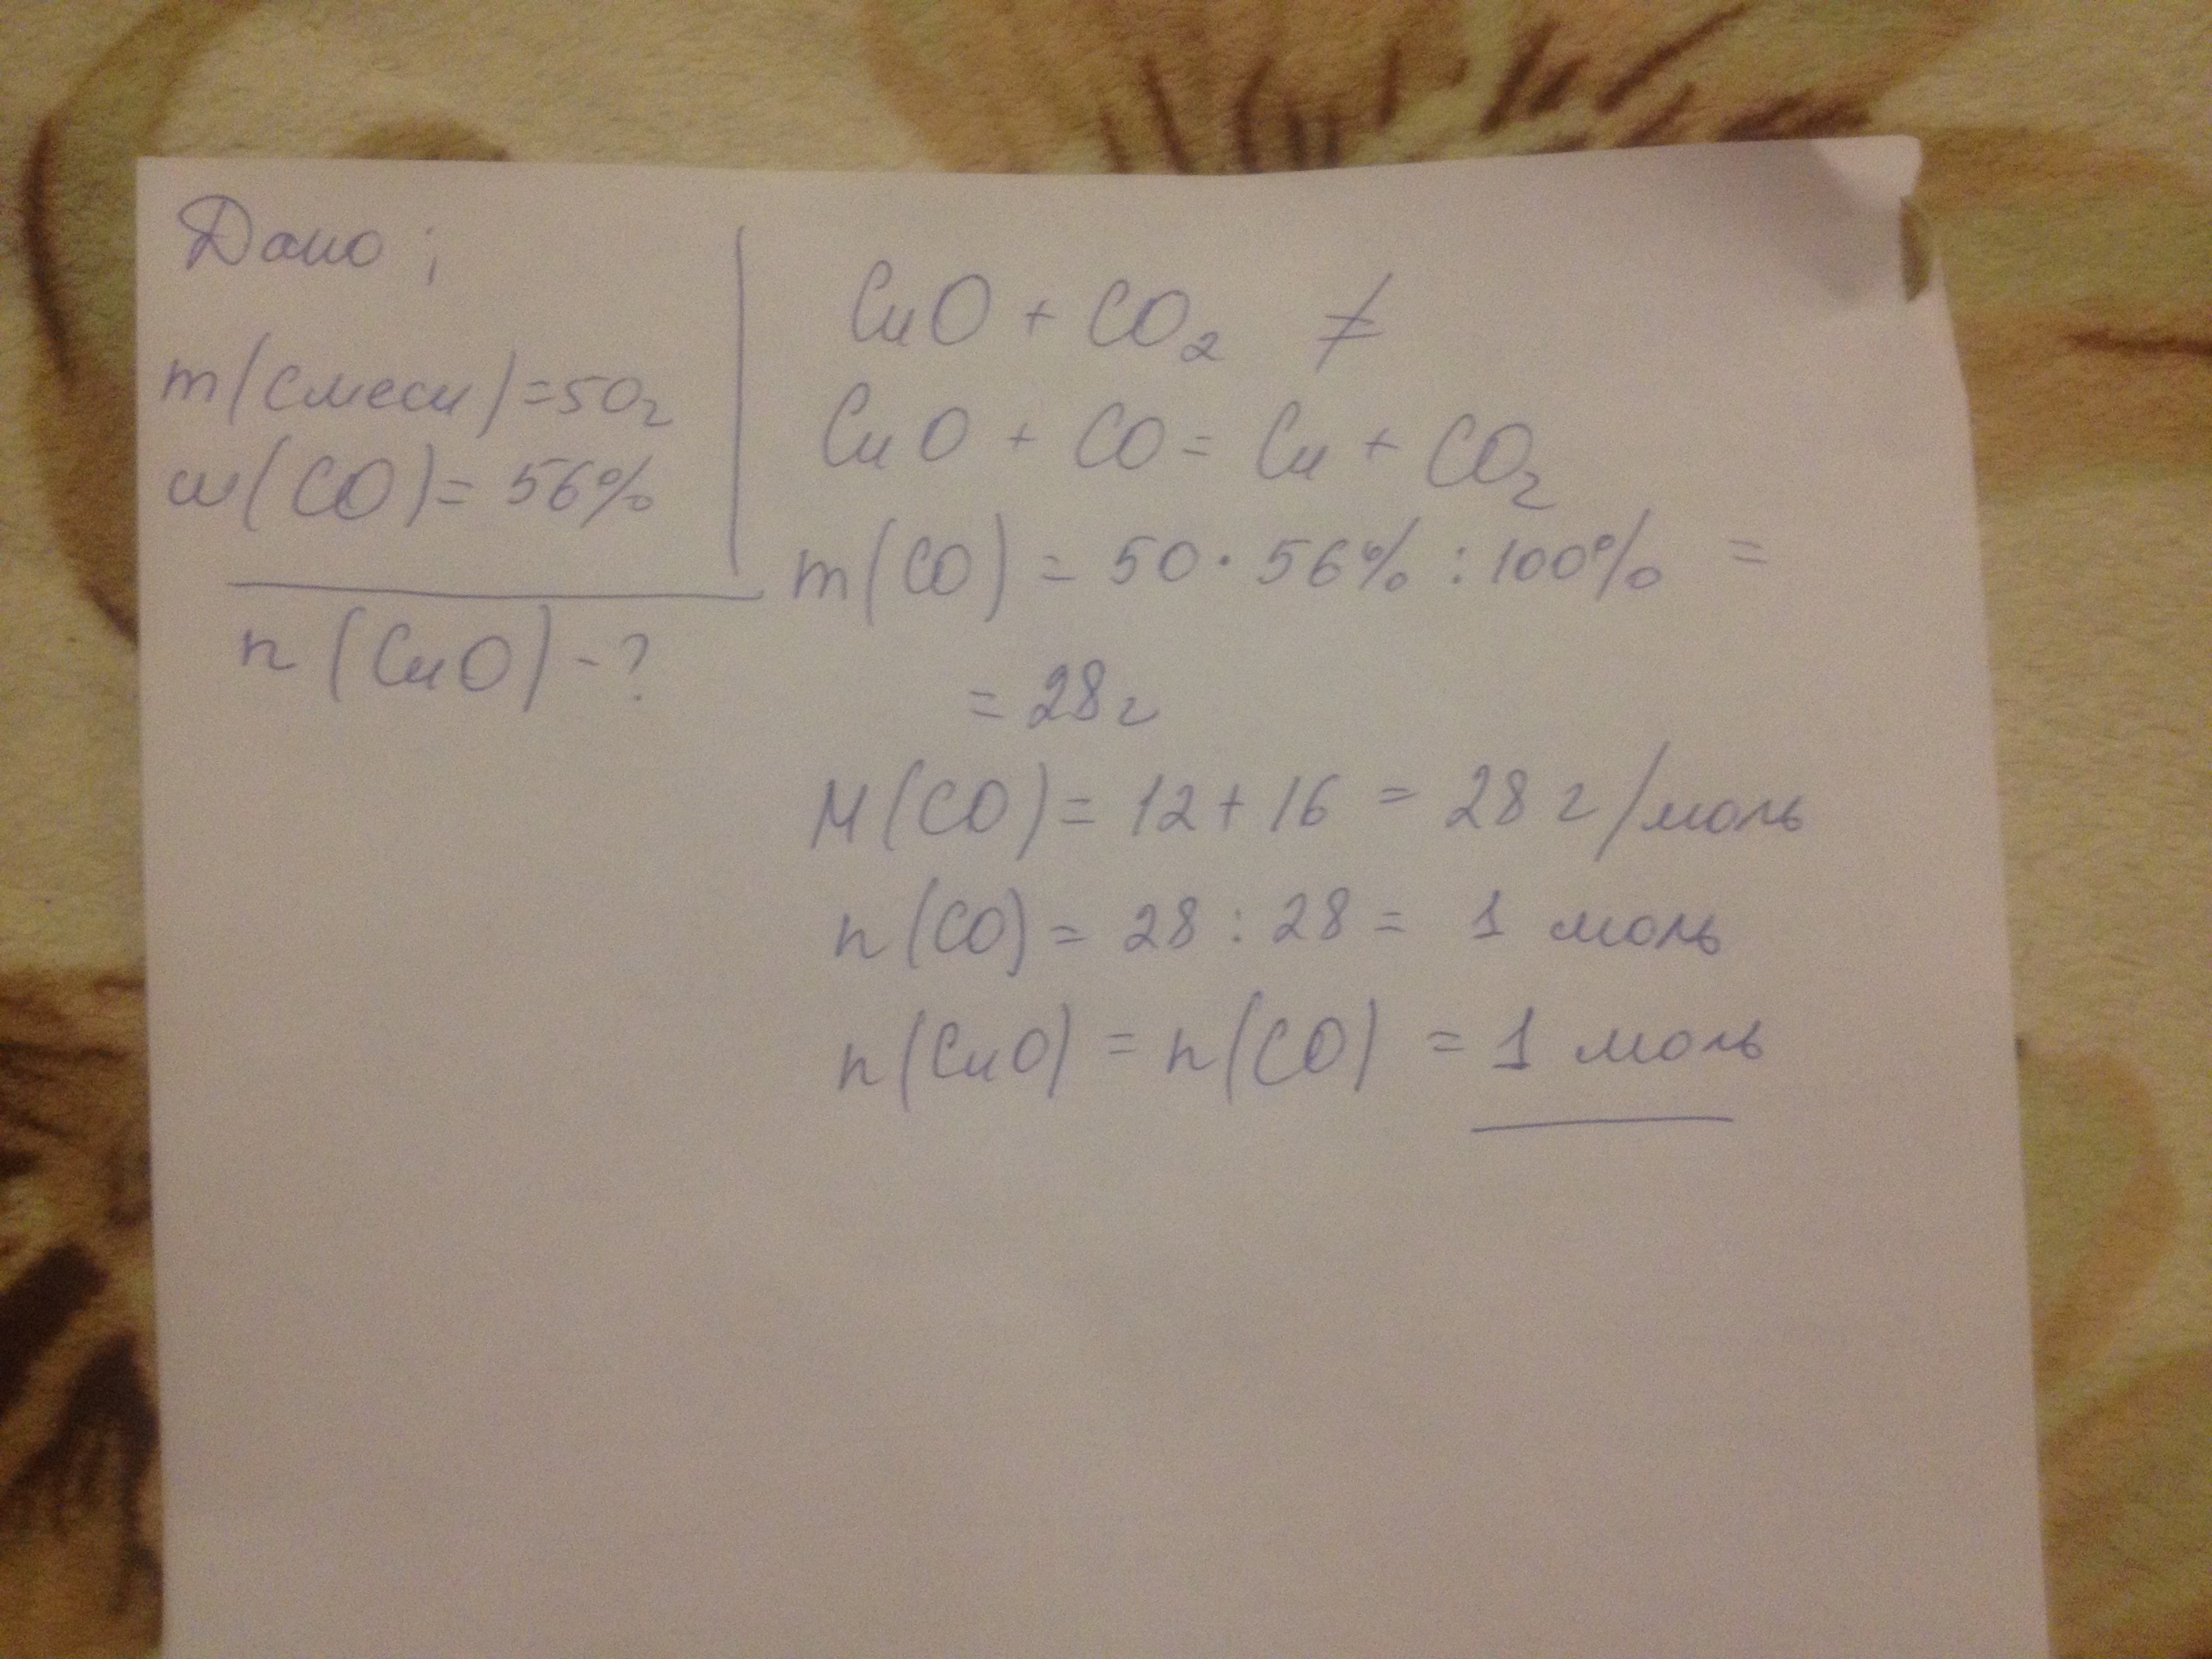 Дано ;
m(смеси)=50г
w(CO)= 56%
n (CuO) - ?
CuO + CO₂ ≠
CuO + CO = Cu + CO₂
m(CO) = 50 · 56% : 100% =
= 28г
M(CO) = 12 + 16 = 28 г/моль
n(CO) = 28 : 28 = 1 моль
n(CuO) = n(CO) = 1 моль